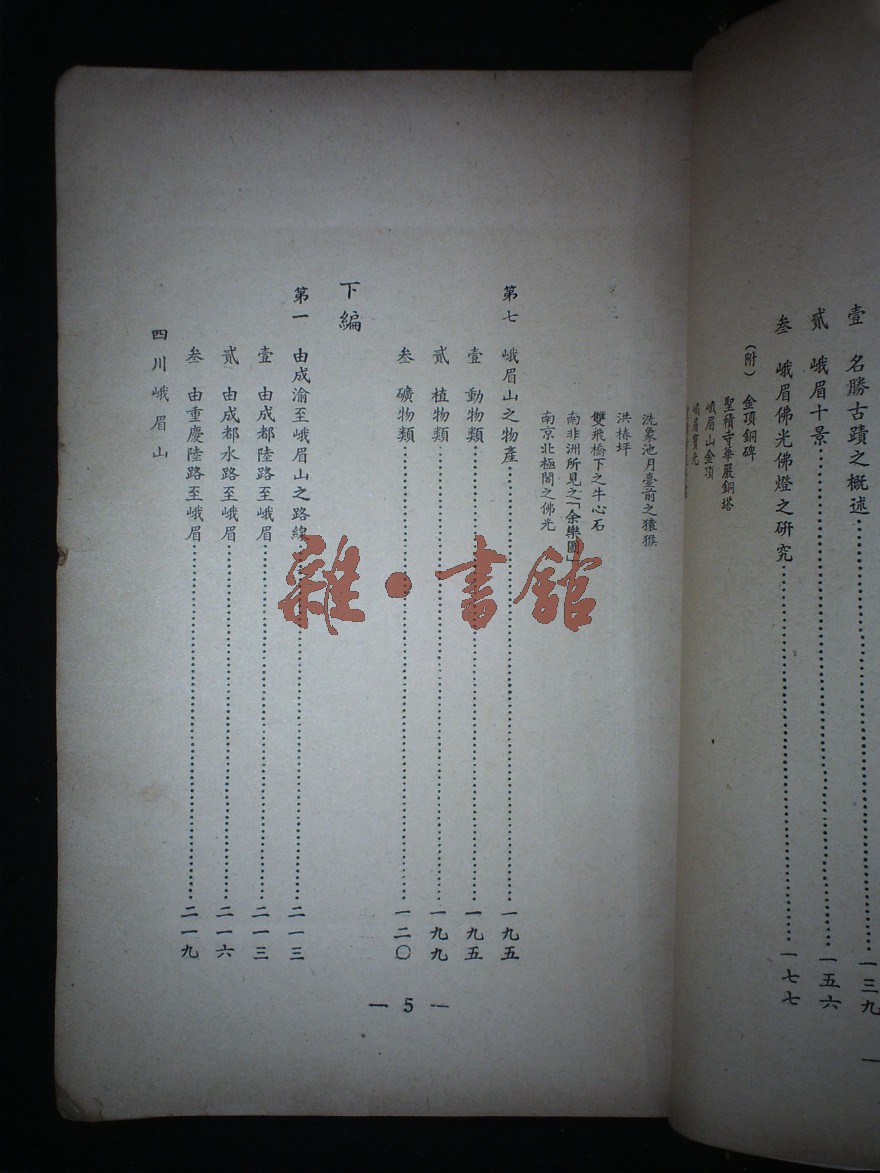 壹　名勝古蹟之概述……一三九
貳　峨眉十景……一五六
叁　峨眉佛光佛燈之研究……一七七
（附）　金頂銅碑
聖積寺華嚴銅塔
峨眉山金頂
峨眉寶光
洗象池月臺前之猿猴
洪椿坪
雙飛橋下之牛心石
南非洲所見之「余樂圖」
南京北極閣之佛光
第七　峨眉山之物產……一九五
壹　動物類……一九五
貳　植物類……一九九
叁　礦物類……一二〇
下編
第一　由成渝至峨眉山之路線……二一三
壹　由成都陸路至峨眉……二一三
貳　由成都水路至峨眉……二一六
叁　由重慶陸路至峨眉……二一九
四川峨眉山
— 5 —
雜·書館